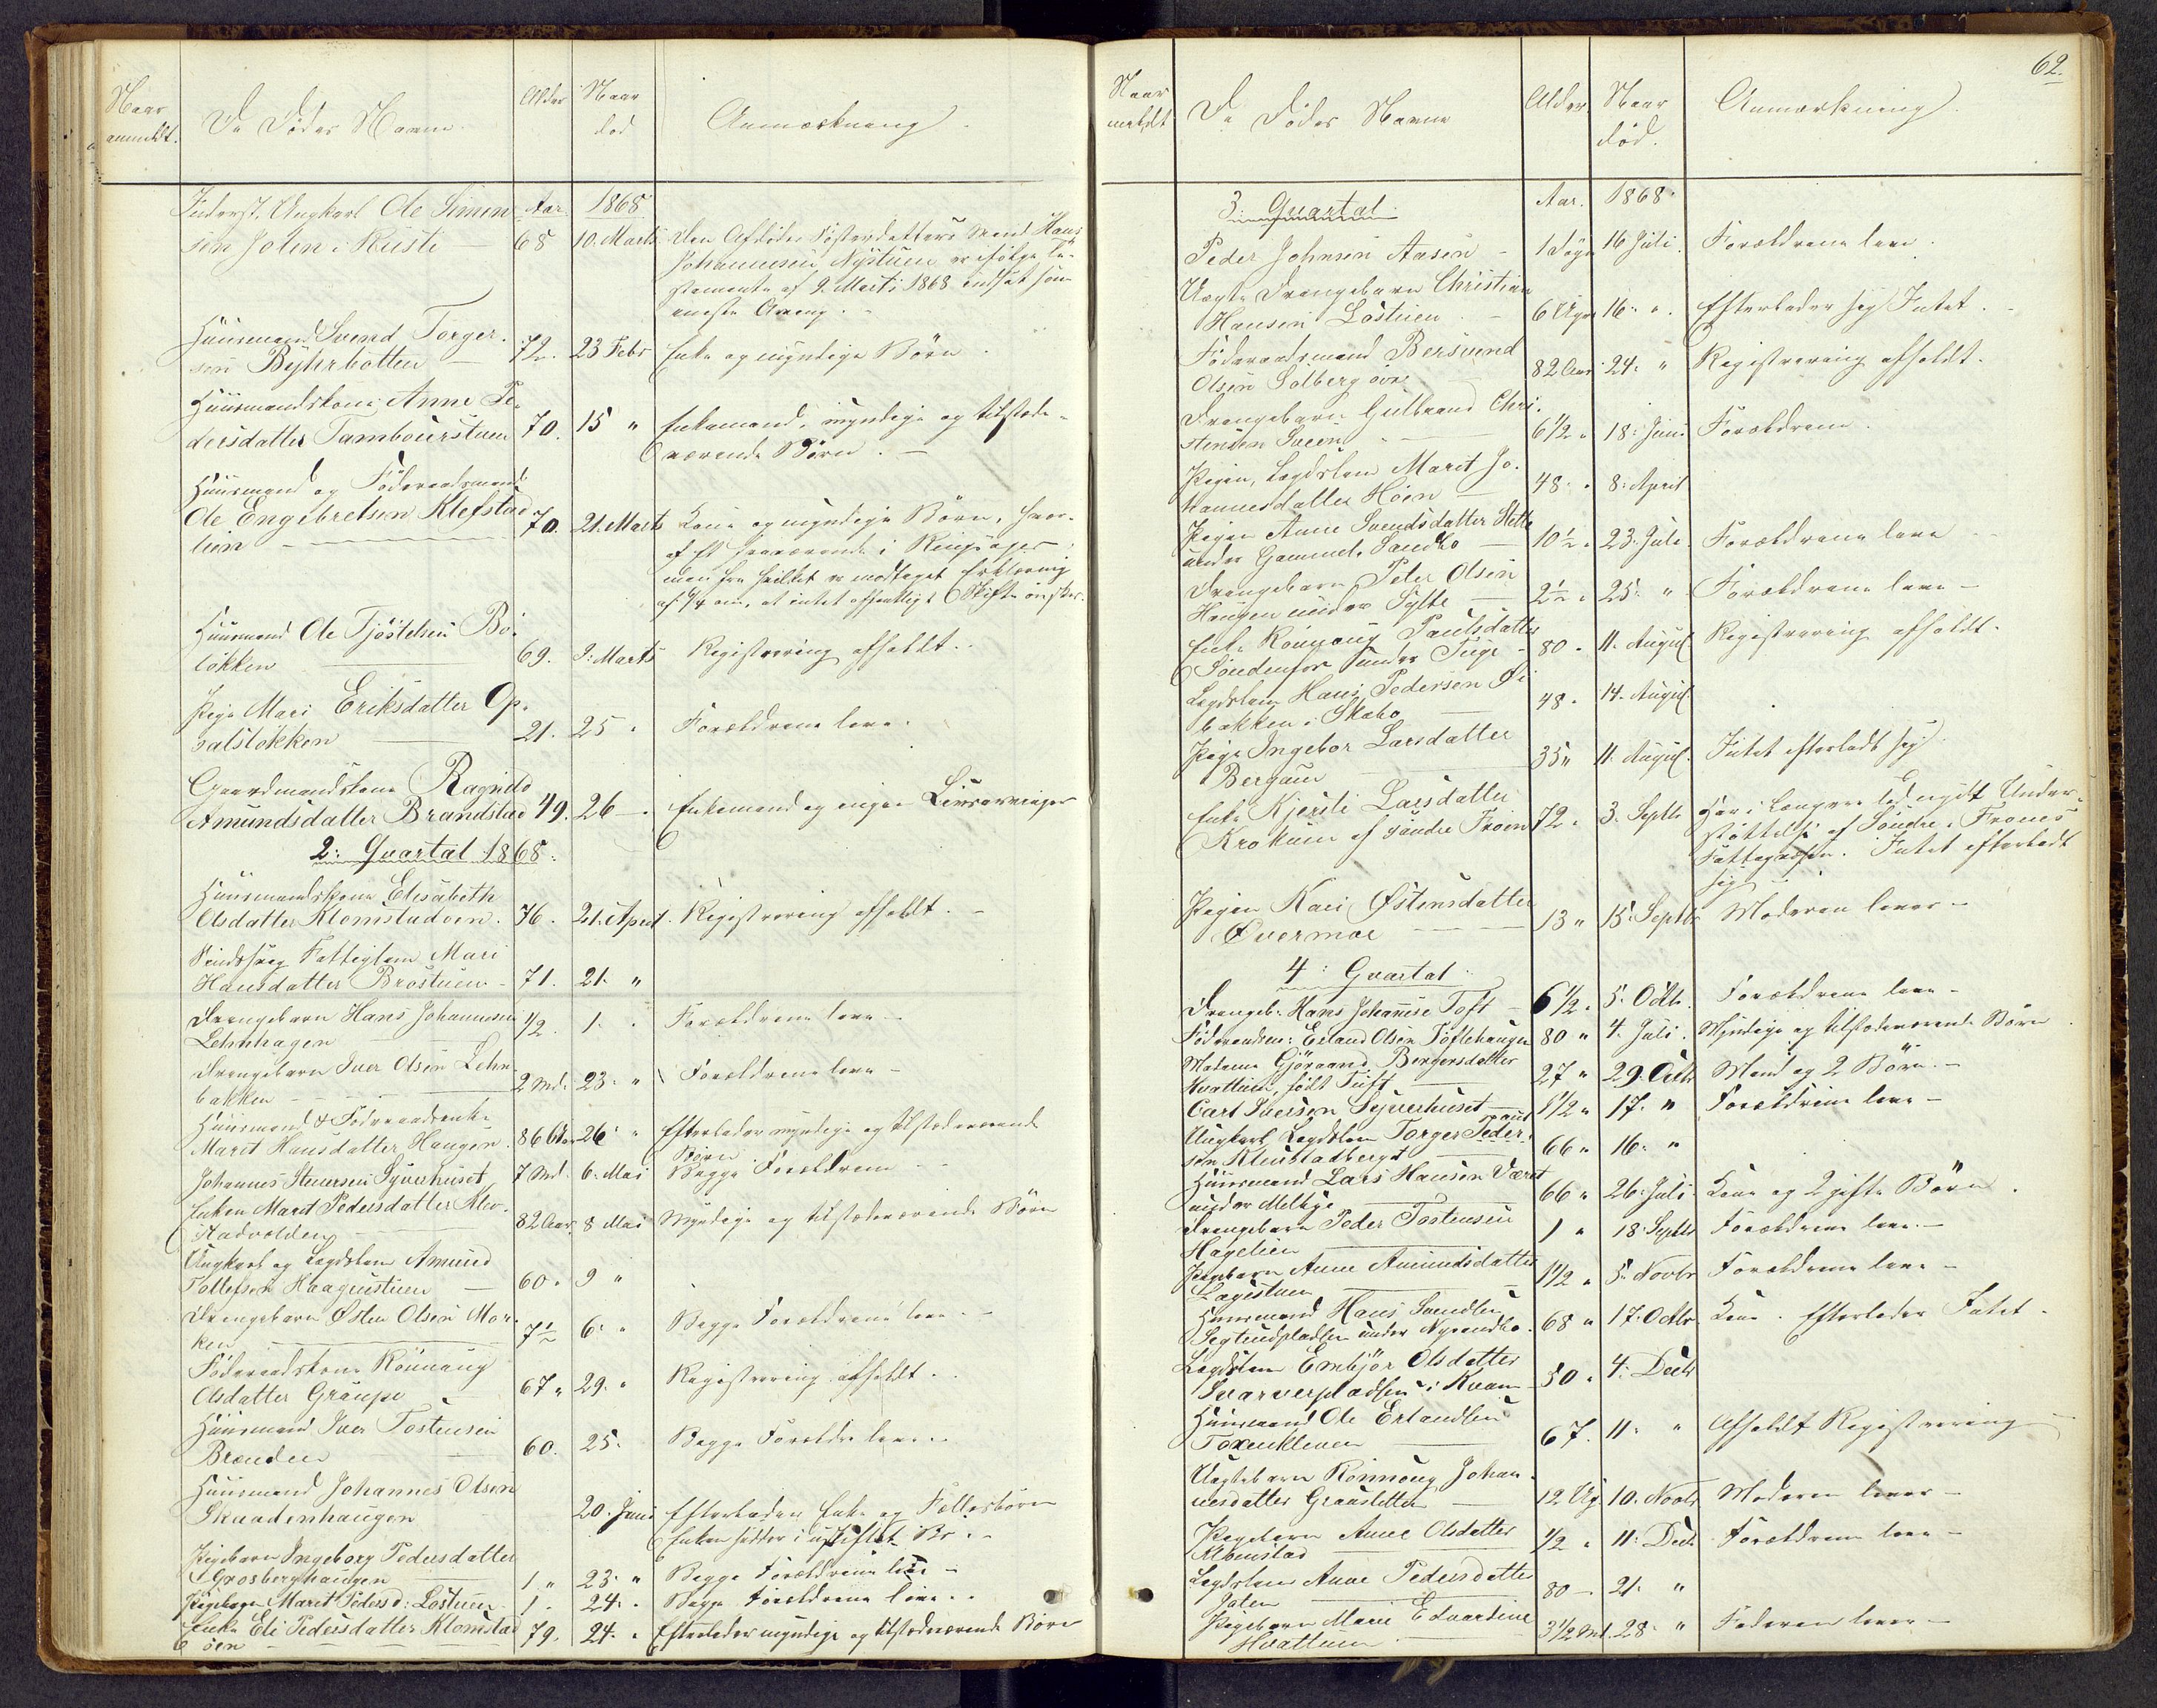 Naar anmeldt. De Dødes Navne. Alder Naar død Anmærkning.
Inderst. Ungkarl Ole Simen Aar 1868
sen Joten i Ruste 68 10. Marts Den Afdødes Søsterdatters Mand Hans
Johannesen Nystuen er ifølge Te-
stamente af 9. Marts 1868 indsat som
eneste Arving.
Huusmand Svend Torger.
sen Byhrbotten 72. 23 Febr Enke og myndige Børn.
Huusmandskone Anne Pe.
dersdatter Tambourstuen 70. 15 " Enkemand, myndige og tilstede-
værende Børn.
Huusmand og Føderaadsmand
Ole Engebretsen Klefstad
lien 70. 21. Marts Kone og myndige Børn, hvor-
af Et fraværende i Ringsager
men fra hvilket er modtaget Erklæring
af 9/4 om, at intet offentligt Skifte ønskes.
Huusmand Ole Tjøstelsen Bø.
løkken 69. 9. Marts Registrering afholdt.
Pige Mari Eriksdatter Op.
salsløkken 21. 25 " Forældrene leve.
Gaardmandskone Ragnild
Amundsdatter Brandstad 49. 26 " Enkemand og ingen Livsarvinger
2. Qvartal 1868.
Huusmandskone Elisabeth
Olsdatter Klomstadøen. 76. 21. April. Registrering afholdt.
Sindssvag Fattiglem Mari
Hansdatter Brostuen 71. 21. "
Drengebarn Hans Johannesen
Lehnhagen 1/2 1. " Forældrene leve
Drengebarn Iver Olsen Lehn
bakken 2 Md. 23. " Forældrene leve
Huusmand & Føderaadsenke
Marit Hansdatter Haugen 86 Aar 26. " Efterlader myndige og tilstedeværende
Børn
Johannes Steensen Syverhuset 7 Md. 6. Mai Begge Forældrene
Enken Marit Pedersdatter
82 Aar 8 Mai Myndige og tilstedeværende Børn
Ungkarl og Lægdslem Amund
Tollefsen Haagenstuen 60. 9 "
Drengebarn Østen Olsen Mor.
ken 7 1/2 6. " Begge Forældrene leve
Føderaadskone Rønnaug
Olsdatter Graupe 67 " 29. " Registrering afholdt.
Huusmand Iver Tostensen
Brænden 60. 25. Begge Forældre leve
Huusmand Johannes Olsen
Skaadenhaugen 20. Juni Efterlader Enke og Fællesbørn
Enken sidder i uskiftet Bo.
Pigebarn Ingeborg Pedersdatter
Grosberghaugen 1 " 23. " Begge Forældrene leve
Pigebarn Marit Pedersd: Løstuen 1 " 24. " Begge Forældrene leve
Enke Eli Pedersdatter Klomstad
øen 79. 24. " Efterlader myndige og tilstedeværende Børn
62.
Naar meldt De Dødes Navne Alder. Naar død. Anmærkning.
3. Qvartal. Aar. 1868.
Peder Johnsen Aasen 1 Døgn 16 Juli. Forældrene leve.
Uægte Drengebarn Christian
Hansen Løstuen 6 Uger 16. " Efterlader sig Intet.
Føderaadsmand Bersvend
Olsen Solberg øvre 82 Aar 24. " Registrering afholdt.
Drengebarn Gulbrand Chri.
stensen Sveen 6 1/2 " 18. Juni Forældrene.
Pigen, Lægdslem Marit Jo.
hannesdatter Høen 48. " 8. April
Pigen Anne Svendsdatter Slette
under Gammel Sandbo 10 1/2 " 23. Juli. Forældrene leve
Drengebarn Peter Olsen
Haugen under Sylte 2 1/2 " 25. " Forældrene leve
Enke Rønnaug Paulsdatter
Søndenfor under Tuge 80 " 11. August Registrering afholdt.
Lægdslem Hans Pedersen Øi
bakken i Skabo 48. 14. August
Pige Ingebor Larsdatter
Bergum 35 " 11. August. Intet efterladt sig.
Enke Kjersti Larsdatter
Krokum af søndre Froen 72 " 3. Septb Har i længere Tid nydt Under-
støttelse af Søndre Froens
Fattigvæsen. Intet efterladt
sig
Pigen Kari Østensdatter
Øvermoe 13 " 15. Septb. Moderen lever
4. Qvartal
Drengeb. Hans Johannesen Toft 6 1/2 " 5. Octb. Forældrene leve
Føderaadsm: Erland Olsen Toftehaugen 80 " 4. Juli. Myndige og tilstedeværende Børn
Madame Gjøraand Bergersdatter
Hvattum, født Tuft 27 " 29. Octb Mand og 2 Børn.
Carl Iversen Syverhuset 1 1/2 " 17. " Forældrene leve
Ungkarl Lægdslem Torger Peder.
sen Klevstadberget 66 " 16. "
Huusmand Lars Hansen Været
under Melbye 66 " 26. Juli Kone og 2 gifte Børn.
Drengebarn Peder Tostensen
Hagelien 1 " 18. Septbr Forældrene leve.
Pigebarn Anne Amundsdatter
Lagestuen 1 1/2 " 5. Novbr Forældrene leve
Huusmand Hans Svendsen
under Nysandbo. 68 " 17. Octbr Kone. Efterlader Intet.
Lægdslem Embjør Olsdatter
Svarverpladsen i Kvam 50 " 4. Decb
Huusmand Ole Erlandsen
Toxenkleven 67. 11. " Afholdt Registrering
Uægtebarn Rønnoug Johan
nesdatter Grausletten 12 Ug. 10. Novbr Moderen lever
Pigebarn Anne Olsdatter
Klomstad 1/2 " 11. Decb. Forældrene leve
Lægdslem Anne Pedersdatter
Joten 80 21. "
Pigebarn Marie Edvardine
Hvattum 3 1/2 Md. 28. " Faderen lever